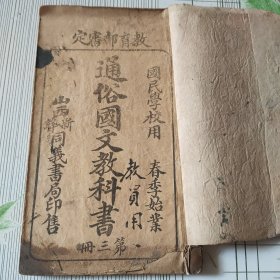 教育部審定
國民學校用
春季始業
通俗國文教科書
教員用
第三冊
山西
同義書局印售